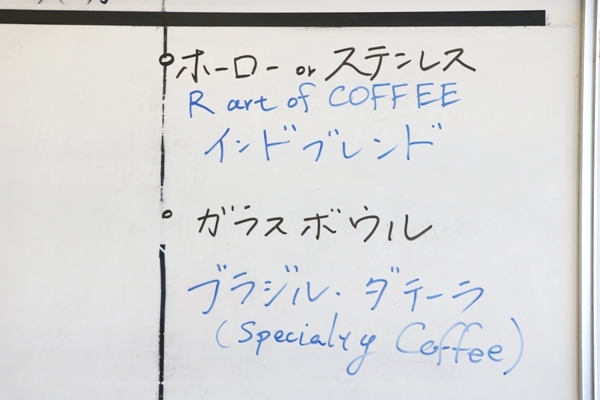 ホーロー or ステンレス
R art of COFFEE
インドブレンド
ガラスボウル
ブラジル・ダテーラ
(Specialyy Coffee)